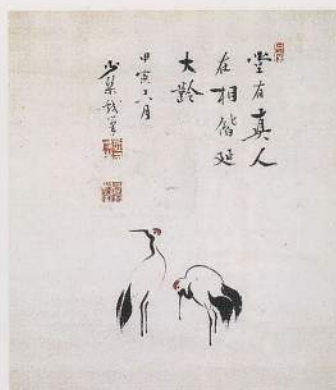 堂有真人
在相偕延
大齡
甲寅六月
少菜戲筆